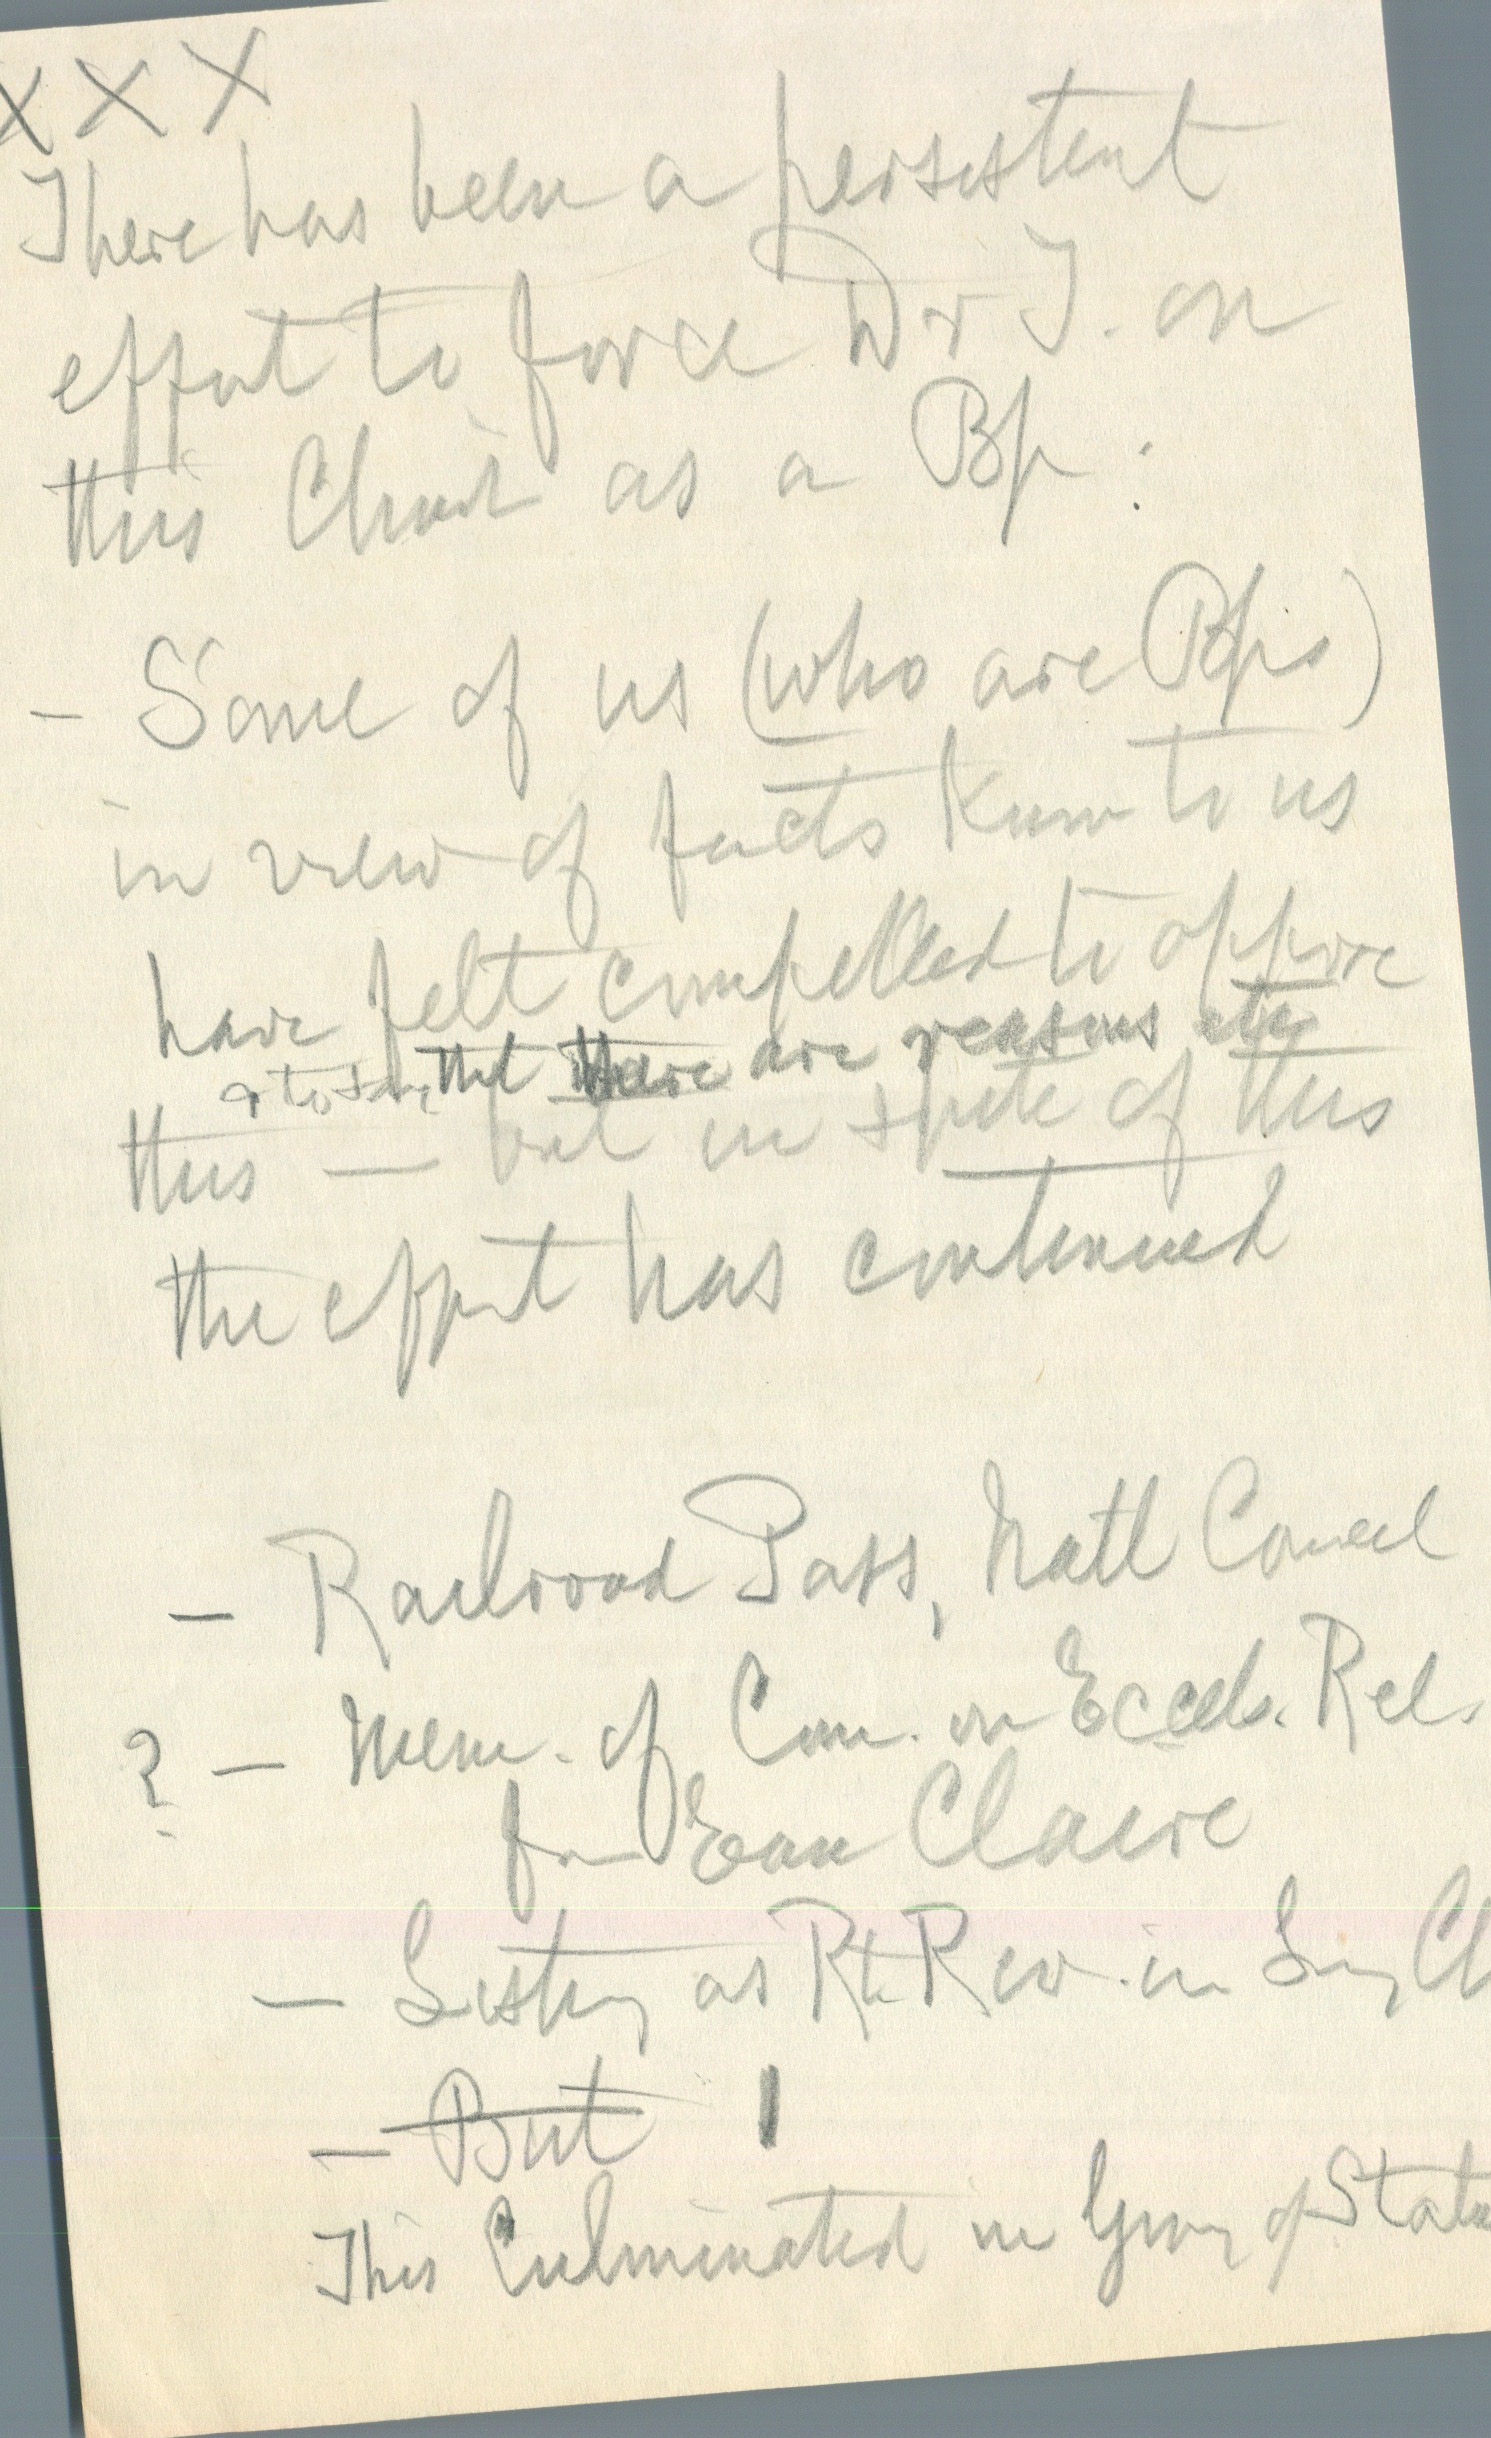 XXX
There has been a persistent
effort to force Dr T. on
this Church as a Bp.
- Some of us (who are Bps)
in view of facts known to us
have felt compelled to oppose
& to say that there are reasons etc
this — but in spite of this
the effort has continued
- Railroad Pass, Natl Council
? - Mem. of Com. on Eccls. Rel.
for Eau Claire
- Listing as Rt. Rev. in Liv Ch
- But
This Culminated in Giving of Status